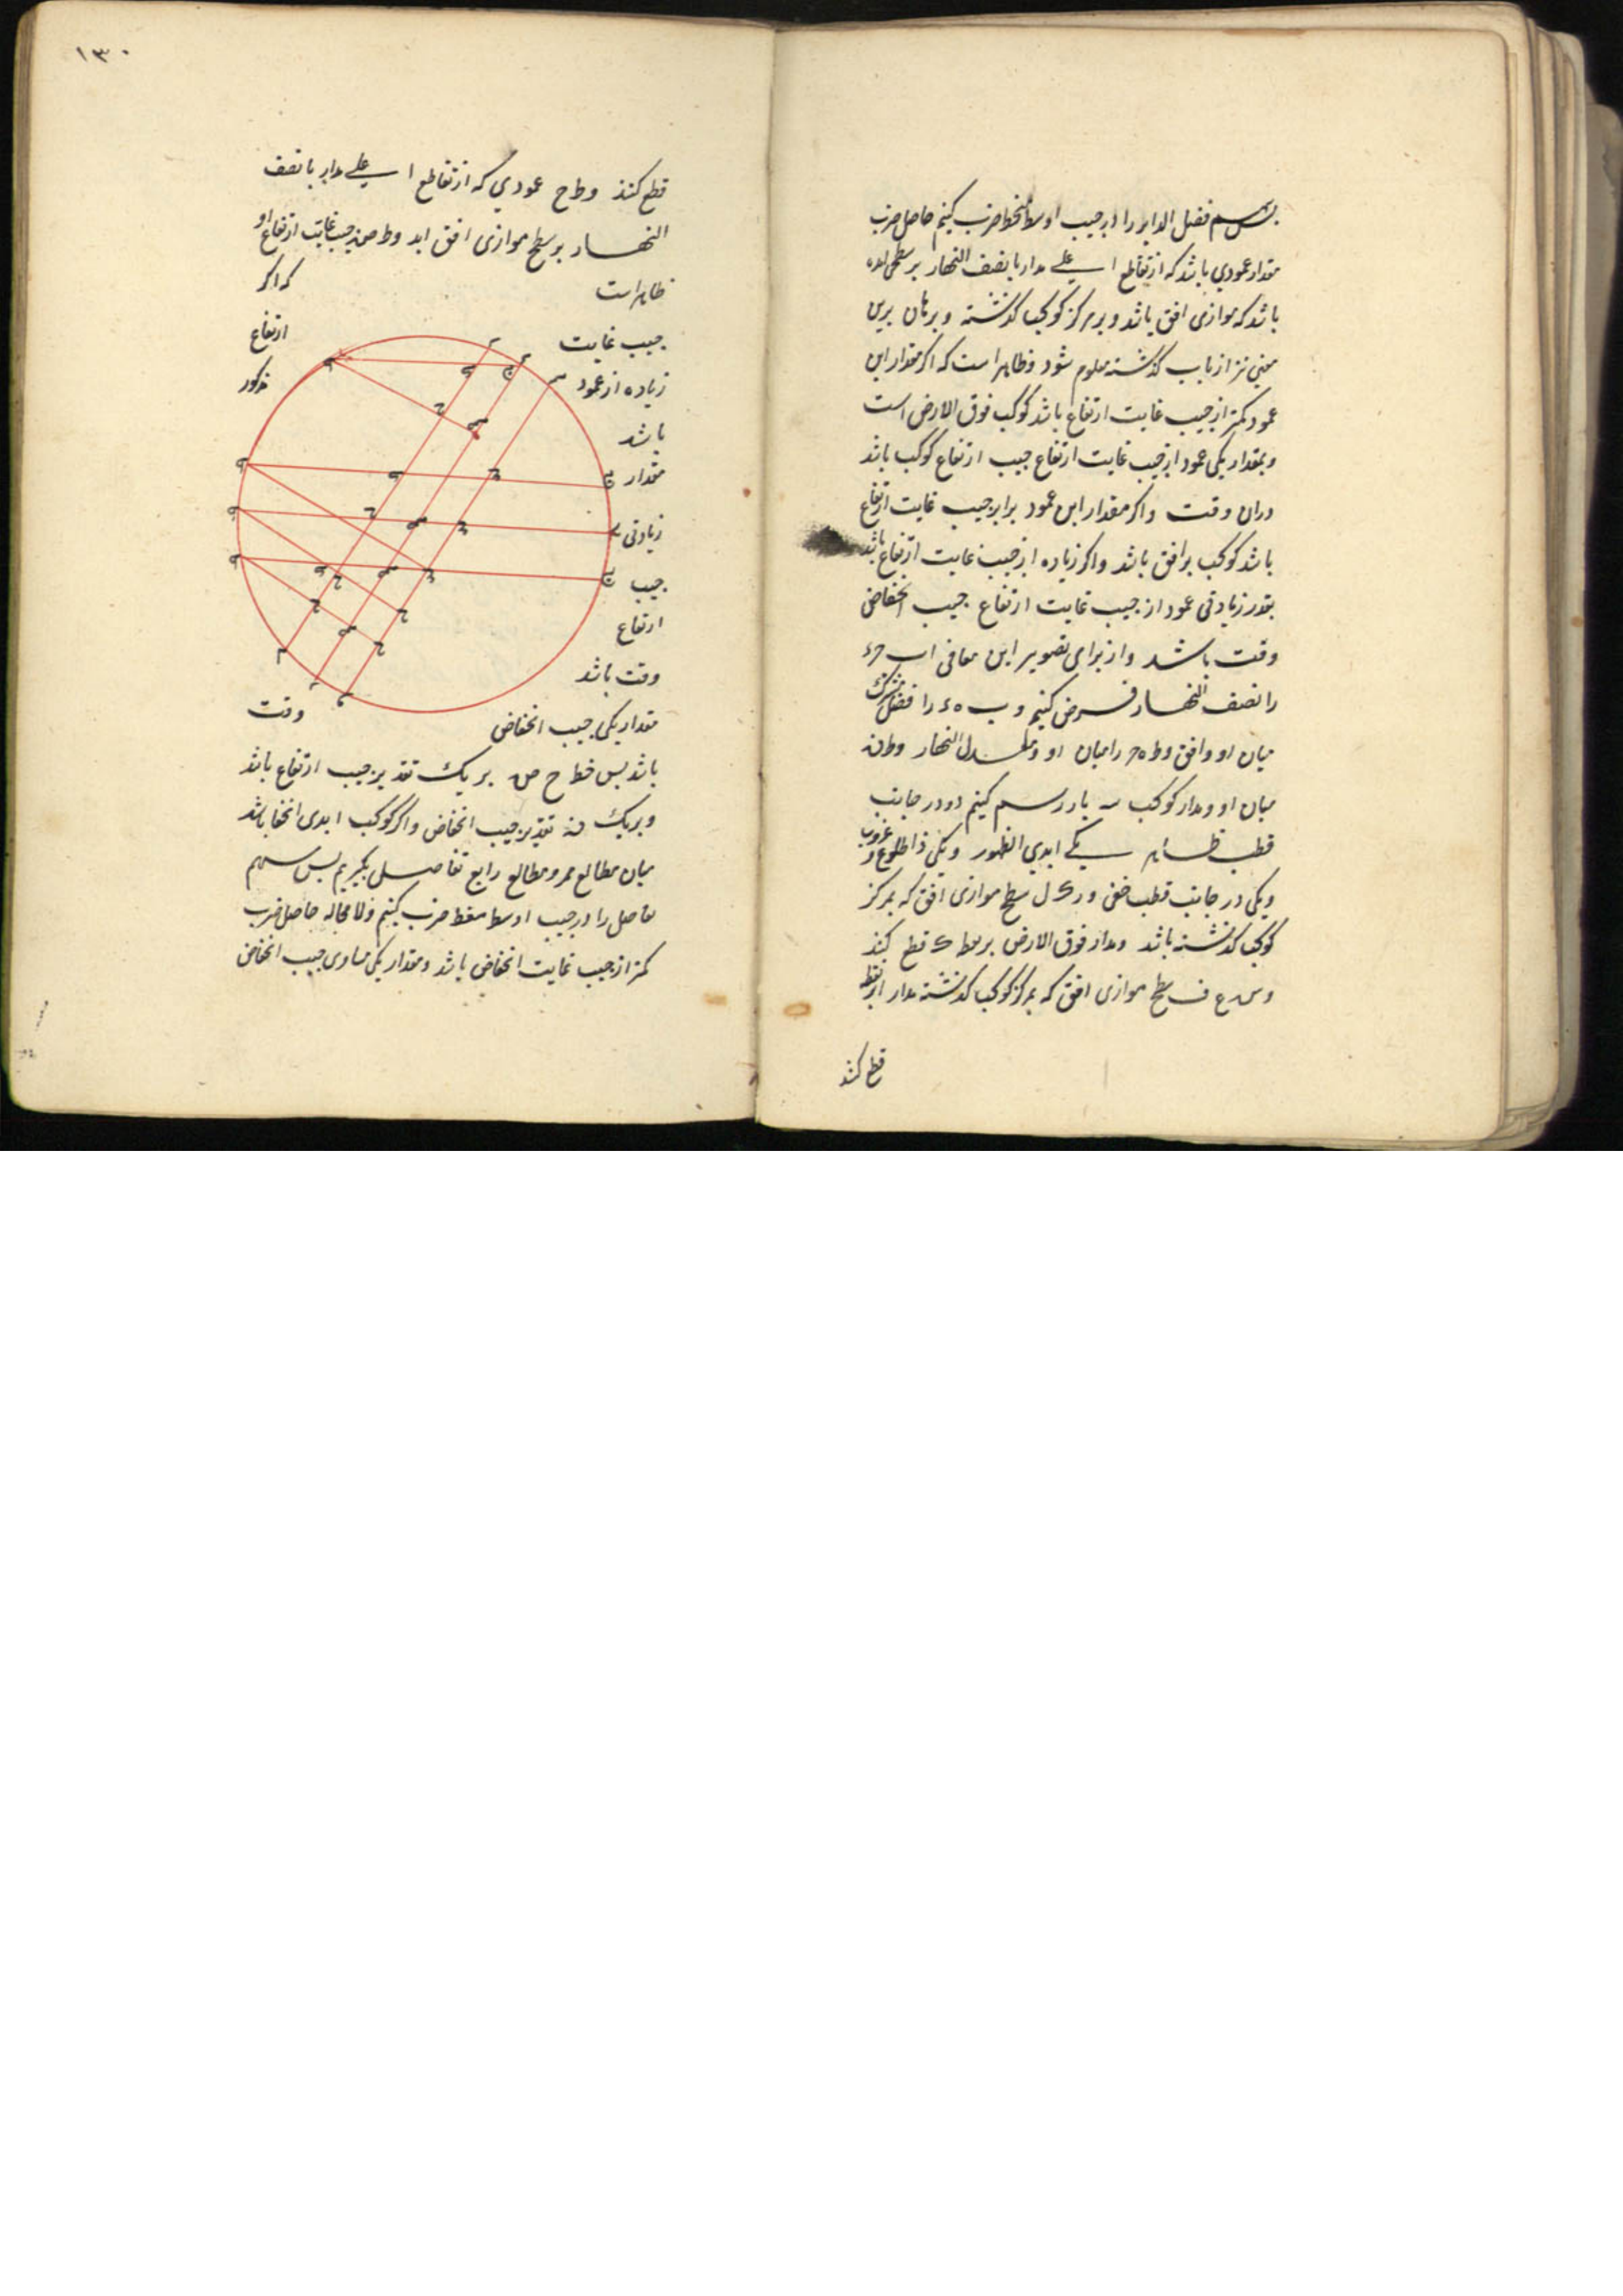 پس سهم فضل الدایر را در جیب اوسط منحط ضرب کنیم حاصل ضرب
مقدار عمودی باشد که از تقاطع اعلی مدار با نصف النهار بر سطحی
باشد که موازی افق باشد و بر مرکز کوکب گذشته و برهان برین
معنی نیز از باب گذشته معلوم شود و ظاهر است که اگر مقدار این
عمود کمتر از جیب غایت ارتفاع باشد کوکب فوق الارض است
و بمقدار یکی عمود از جیب غایت ارتفاع جیب ارتفاع کوکب باشد
در آن وقت و اگر مقدار این عمود برابر جیب غایت ارتفاع
باشد کوکب بر افق باشد و اگر زیاده از جیب غایت ارتفاع باشد
بقدر زیادتی عمود از جیب غایت ارتفاع جیب انخفاض
وقت باشد و از برای تصویر این معانی اب
را نصف النهار فرض کنیم و ب ه ء را فصل مشترک
میان او و افق و ط ه را میان او و معدل النهار و ط ن
میان او و مدار کوکب سه بار رسم کنیم دو در جانب
قطب ظاهر یکی ابدی الظهور و یکی ذا طلوع و غروب
و یکی در جانب قطب خفی و ر ک ل سطح موازی افق که بمرکز
کوکب گذشته باشد و مدار فوق الارض بر نقط ک قطع کند
و س ع ف سطح موازی افق که بمرکز کوکب گذشته مدار از نقطه
قطع کند
۱۳۰
قطع کند و ط ح عمودی که از تقاطع اعلی مدار با نصف
النهار بر سطح موازی افق اید و ط ص جیب غایت ارتفاع او
ظاهر است که اگر
جیب غایت ارتفاع
زیاده از عمود مذکور
باشد
مقدار
زیادتی
جیب
ارتفاع
وقت باشد
مقدار یکی جیب انخفاض وقت
باشد پس خط ح ص بر یک تقدیر جیب ارتفاع باشد
و بر یک تقدیر جیب انخفاض و اگر کوکب ابدی الخفا باشد
میان مطالع ممر و مطالع رابع تفاضل بگیریم پس سهم
تفاضل را در جیب اوسط منحط ضرب کنیم و لا محاله حاصل ضرب
کمتر از جیب غایت انخفاض باشد و مقدار یکی مساوی جیب انخفاض